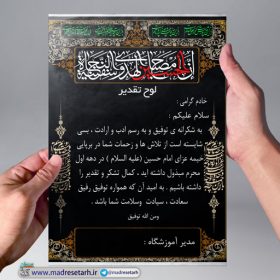 ان الحسین مصباح الهدی و سفینة النجاة
لوح تقدیر
خادم گرامی :
سلام علیکم ؛
به شکرانه ی توفیق و به رسم ادب و ارادت ، بسی
شایسته است از تلاش ها و زحمات شما در برپایی
خیمه عزای امام حسین (علیه السلام ) در دهه اول
محرم مبذول داشته اید ، کمال تشکر و تقدیر را
داشته باشیم . به امید آن که همواره توفیق رفیق
سعادت ، سیادت وسلامت شما باشد .
ومن الله توفیق
مدیر آموزشگاه :
www.madresetarh.ir @madresetarh